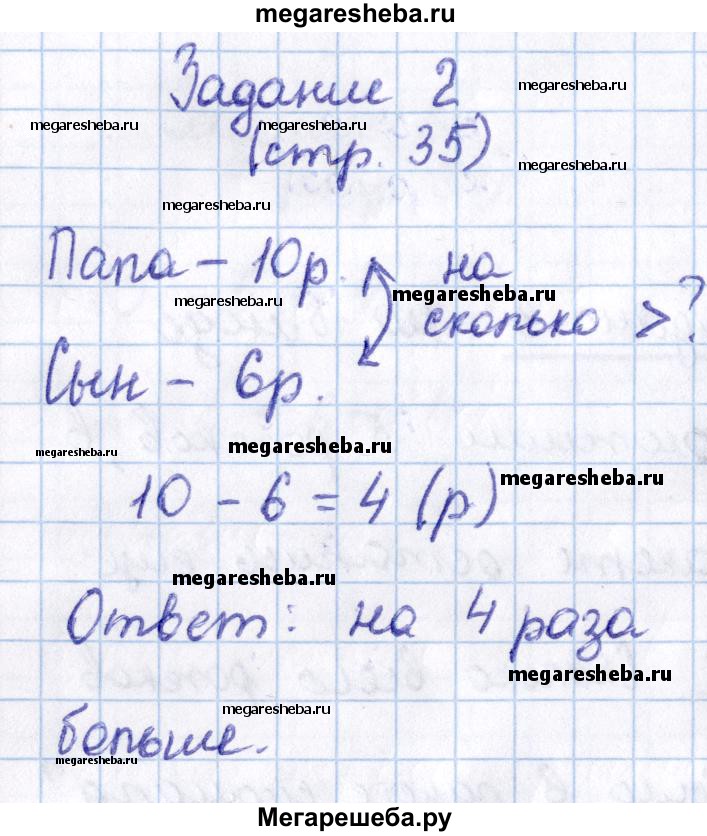 megaresheba.ru
Задание 2
megaresheba.ru
megaresheba.ru megaresheba.ru
(стр. 35)
megaresheba.ru
megaresheba.ru
Папа – 10р. на
megaresheba.ru megaresheba.ru
сколько > ?
Сын – 6р.
megaresheba.ru megaresheba.ru
10 - 6 = 4 (р)
megaresheba.ru
megaresheba.ru
Ответ: на 4 раза
megaresheba.ru
megaresheba.ru
больше.
megaresheba.ru
Мегарешеба.ру